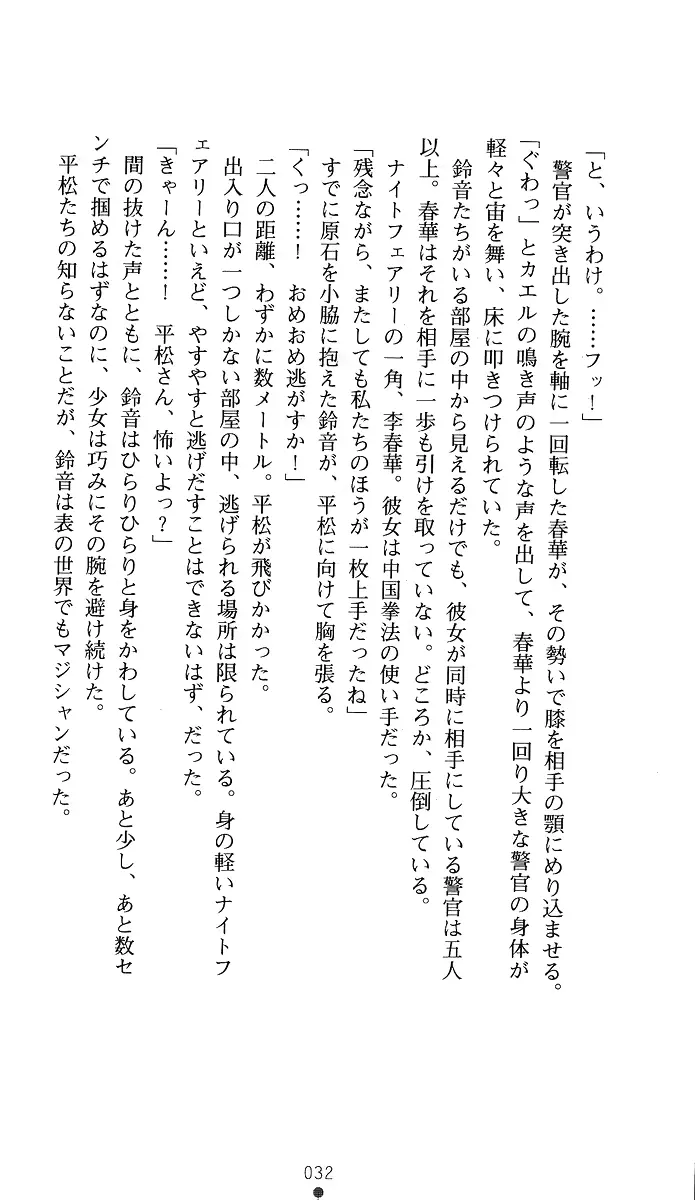 「と、いうわけ。……フッ！」
　警官が突き出した腕を軸に一回転した春華が、その勢いで膝を相手の顎にめり込ませる。
「ぐわっ」とカエルの鳴き声のような声を出して、春華より一回り大きな警官の身体が
軽々と宙を舞い、床に叩きつけられていた。
　鈴音たちがいる部屋の中から見えるだけでも、彼女が同時に相手にしている警官は五人
以上。春華はそれを相手に一歩も引けを取っていない。どころか、圧倒している。
　ナイトフェアリーの一角、李春華。彼女は中国拳法の使い手だった。
「残念ながら、またしても私たちのほうが一枚上手だったね」
　すでに原石を小脇に抱えた鈴音が、平松に向けて胸を張る。
「くっ……！　おめおめ逃がすか！」
　二人の距離、わずかに数メートル。平松が飛びかかった。
　出入り口が一つしかない部屋の中、逃げられる場所は限られている。身の軽いナイトフ
ェアリーといえど、やすやすと逃げだすことはできないはず、だった。
「きゃーん……！　平松さん、怖いよっ？」
　間の抜けた声とともに、鈴音はひらりひらりと身をかわしている。あと少し、あと数セ
ンチで掴めるはずなのに、少女は巧みにその腕を避け続けた。
　平松たちの知らないことだが、鈴音は表の世界でもマジシャンだった。
032